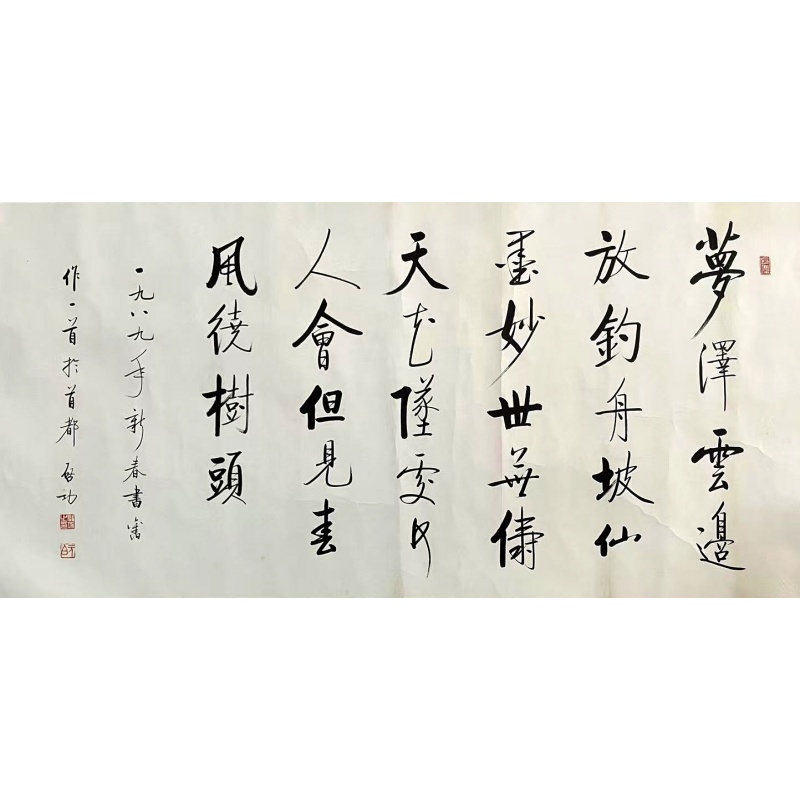 夢澤雲邊
放釣舟坡仙
墨妙世無儔
天花墜處何
人會但見春
風繞樹頭
一九八九年新春書舊
作一首於首都 啟功